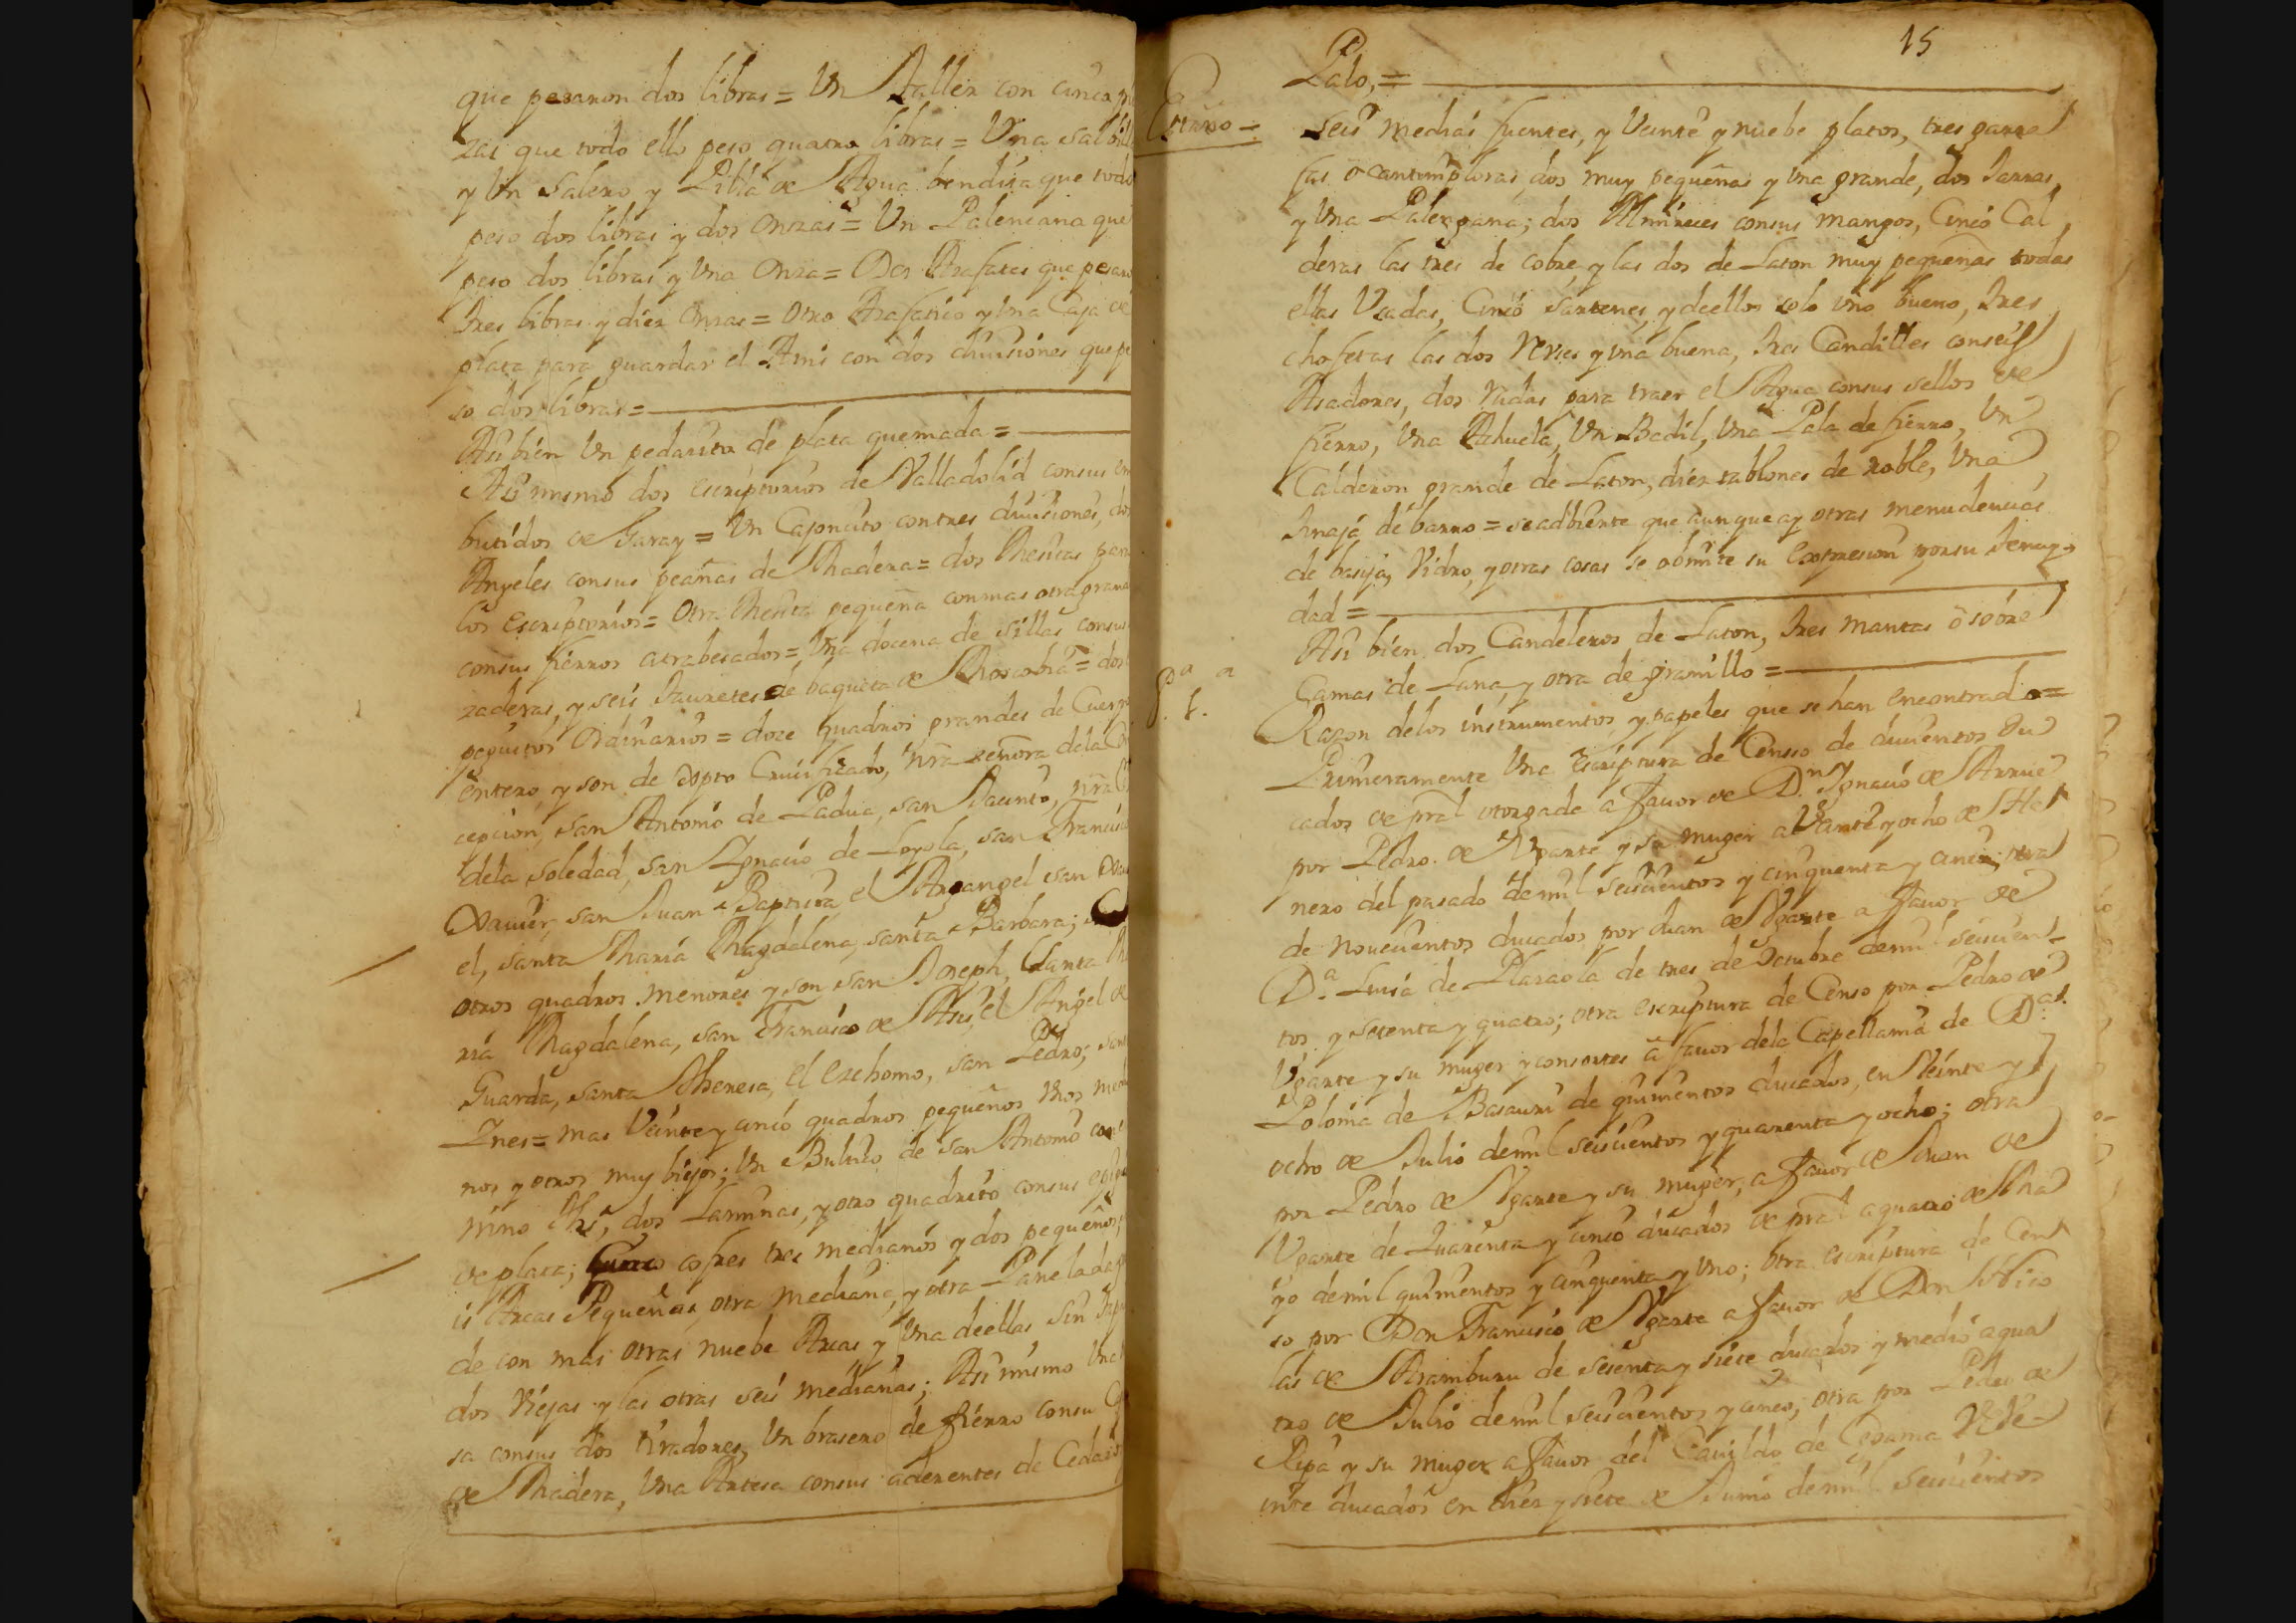 que pesaron dos libras = Un Taller con cinco pie
zas que todo ello peso quatro libras = Una salbill
y Un salero y Pilla de Agua bendita que todo
peso dos libras y dos onzas = Un Palenciana que
peso dos libras y Una Onza = Dos Azafates que pesaro
tres libras y diez Onzas = Otro Azafatico y Una Caja de
plata para guardar el Anis con dos diuisiones que pe
so dos libras =
Assi bien Un pedacito de plata quemada =
Assi mismo dos escriptorios de Valladolid consus em
butidos de Garay = Un Cajoncito contres diuisiones, dos
Angeles consus peañas de Madera = dos Mesitas para
los Escriptorios = Otra Mesita pequeña conmas otra grand
consus fierros atrabesados = Una docena de sillas consus
zaderas, y seis Tauretes de baqueta de Moscobia = dos
pequitos Ordinarios = doze quadros grandes de Cuerpo
entero y son, de Xpto Crucificado, nra señora dela Con
cepcion, san Antonio de Padua, san Jacinto, nra S
dela soledad, san Ygnacio de Loyola, san Francisco
Xauier, san Juan Baptista, el Arcangel san Rafa
el, santa Maria Magdalena, santa Barbara;
otros quadros menores y son san Joseph, santa Ma
ria Magdalena, san Francisco de Assis, el Angel de
Guarda, santa Theresa, el Ecehomo, san Pedro; santa
Ynes = mas Veinte y cinco quadros pequeños Unos media
nos y otros muy biejos; Un Bultico de san Antonio con
nino Jhs, dos Laminas, y otro quadrito consus
de plata; Cinco cofres tres medianos y dos pequeños,
is Arcas Pequeñas, otra mediana, y otra Panelada
de con mas otras nuebe Arcas y Una deellas sin
dos Viejas y las otras seis medianas; Assi mismo Una
sa consus dos tiradores, Un brasero de fierro consu
de Madera, Una Artesa consus aderentes de Cedazos
15
Palo, =
Estaño =
seis medias fuentes, y Veinte y nuebe platos, tres garra
fas o cantimploras, dos muy pequeñas y Una grande, dos Jarras,
y Una Palexgana; dos Almireces consus mangos, Cinco Cal
deras las tres de cobre y las dos de Laton muy pequeñas todas
ellas Usadas, Cinco sartenes, y deellos solo Uno bueno, Tres
chofetas las dos Vexas y Una buena, Tres Candilles conseis
Asadores, dos Vidas para traer el Agua consus sellos de
fierro, Una Achuela, Un Badil, Una Pala de fierro, Un
Calderon grande de Laton, diez tablones de roble, Una
tinaja de barro = se adbierte que aunque ay otras menudencias
de basija, Vidro, y otras cosas se obmite su Expresion porsu Tenuy
dad =
Assi bien dos Candeleros de Laton, Tres mantas o sobre
Camas de Lana y otra de gramillo =
Razon delos instrumentos y papeles que se han encontrado =
Primeramente Una Escriptura de Censso de ducientos Du
cados de pral otorgade a fauor de Dn Ygnacio de Arrue
por Pedro de Ugarte y su muger a Veinte y ocho de He
nero del pasado demil seiscientos y cinquenta y cinco; otra
de nouecientos ducados por Juan de Ugarte a fauor de
D.a Luisa de Plazaola de tres de Octubre demil seiscien
tos y setenta y quatro; otra escriptura de Censo por Pedro de
Ugarte y su muger y consortes a fauor dela Capellania de D.a
Poloma de Basauri de quinientos ducados, en Veinte y
ocho de Julio demil seiscientos y quarenta y ocho; otra
por Pedro de Ugarte y su muger, a fauor de Juan de
Ugarte de Quarenta y cinco ducados de pral a quatro de Ma
yo demil quinientos y cinquenta y Uno; otra escriptura de Cen
so por Don Francisco de Ugarte a fauor de Don Nico
las de Aramburu de sesenta y siete ducados y medio a qua
tro de Julio demil seiscientos y cinco; otra por Pedro de
Ripa y su muger a fauor del Cauildo de Cegama de Ve
inte ducados en diez y siete de Junio demil seiscientos